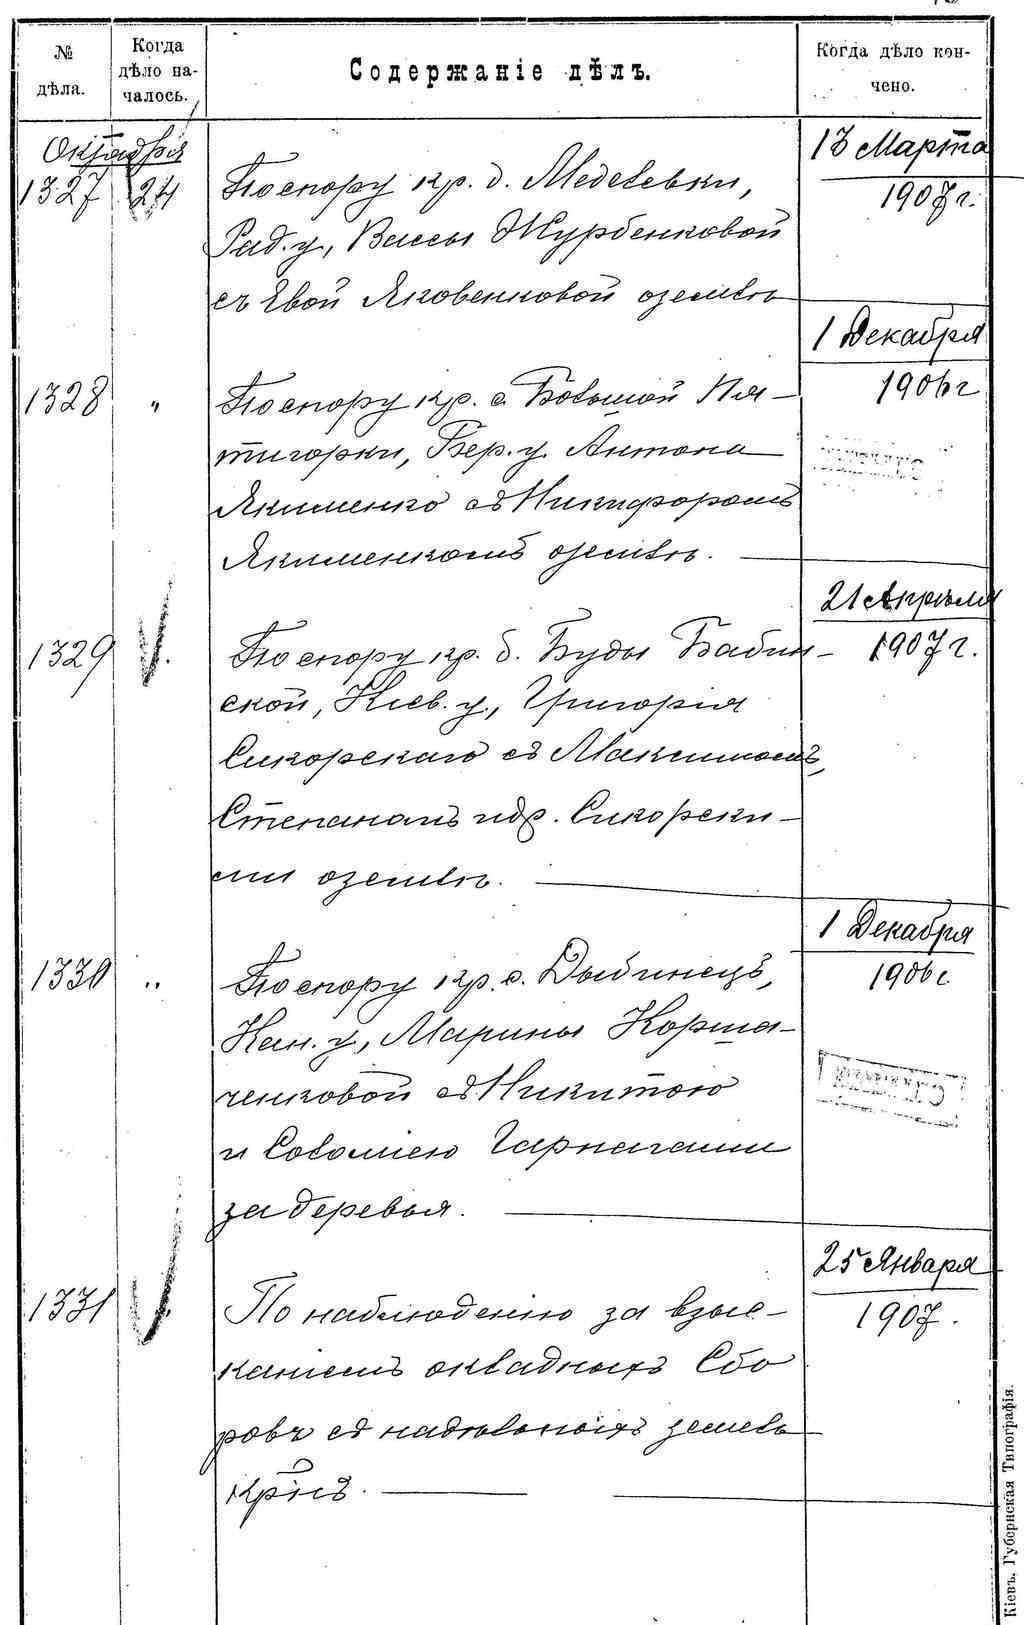 № дѣла.
Когда дѣло на-
чалось.
Содержаніе дѣлъ.
Когда дѣло кон-
чено.
Октября
1327 24 По спору кр. д. Медевки,
Рад. у., Вассы Журбенковой
съ Евой Яковенковой о землѣ
13 Марта
1907 г.
1328 " По спору кр. с. Большой Пя-
тигорки, Бер. у. Антона
Якименко съ Никифоромъ
Якименкомъ о землѣ.
1 Декабря
1906 г
1329 По спору кр. д. Буды Бабин-
ской, Кіев. у., Григорія
Сикорскаго съ Максимомъ,
Степаномъ и др. Сикорски-
ми о землѣ.
21 Апрѣля
1907 г.
1330 " По спору кр. с. Дыбинецъ,
Кан. у., Марины Корша-
ченковой съ Никитою
и Соломіею Гарначами
за деревья.
1 Декабря
1906 г.
1331 По наблюденію за взыс-
каніемъ окладныхъ сбо
ровъ съ надѣльныхъ земель
крнъ.
25 Января
1907.
Кіевъ, Губернская Типографія.